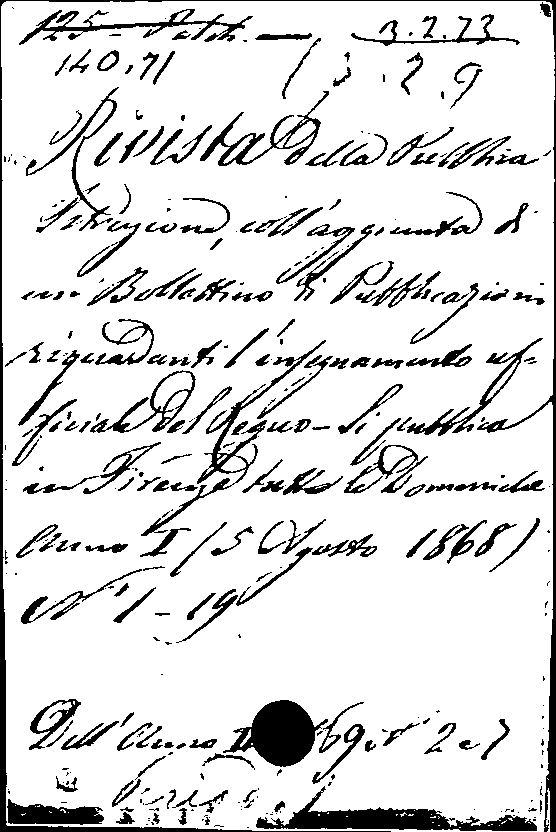 125 - Palch. — 3.2.73
140.71 13.2.9
Rivista della Pubblica
Istruzione, coll'aggiunta di
un Bollettino di Pubblicazioni
riguardanti l'insegnamento uf-
ficiale del Regno - Si pubblica
in Firenze tutte le Domeniche
Anno I (5 Agosto 1868)
N° 1 - 19
Dell'Anno II 69 i n' 2 e 7